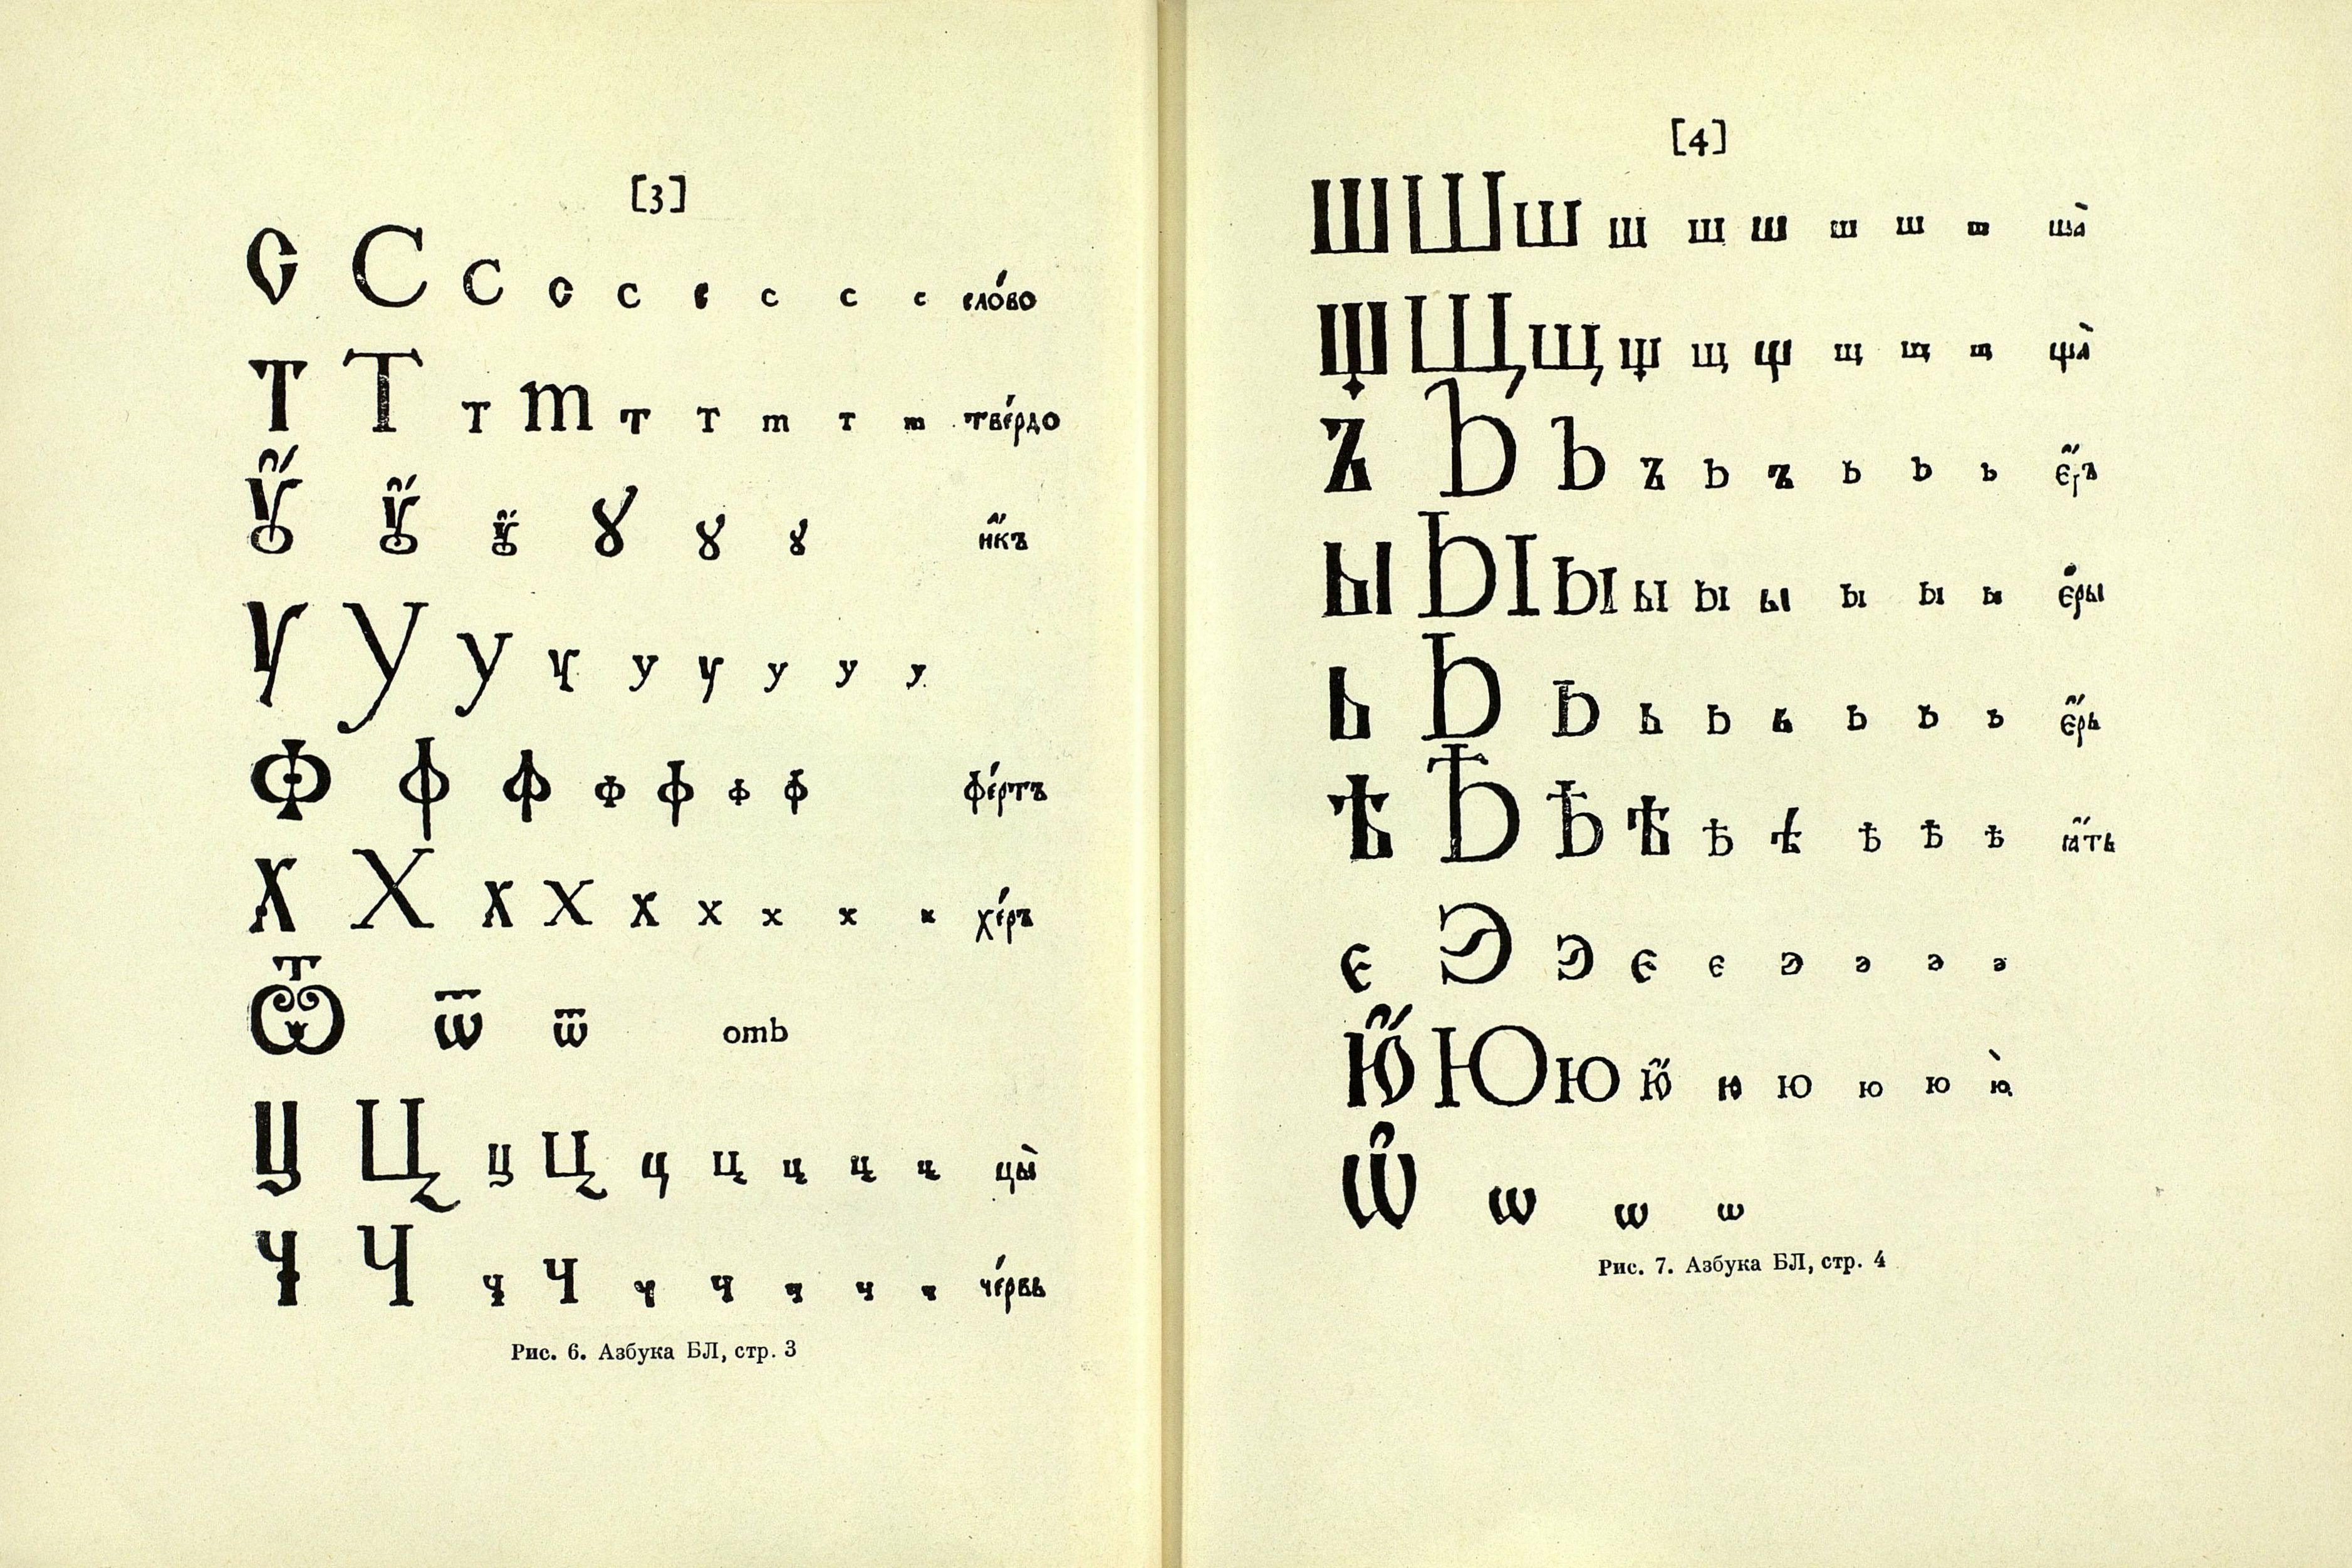 [3]
С С с с с с с с с сло́во
Т Т т m т т m т m тве́рдо
Ѹ҆́ Ѹ҆́ ѹ҆́ ꙋ ꙋ ꙋ и҆́къ
У У у у у у у у у
Ф ф ф ф ф ф ф фе́ртъ
Х Х х х х х х х х хе́ръ
Ѿ ѿ ѿ отъ
Ц Ц ц Ц ц ц ц ц ц цы̀
Ч Ч ч Ч ч ч ч ч ч че́рвь
Рис. 6. Азбука БЛ, стр. 3
[4]
Ш Ш ш ш ш ш ш ш ш ша̀
Щ Щ щ щ щ щ щ щ щ ща̀
Ъ Ъ ъ ъ ъ ъ ъ ъ ъ є҆́ръ
Ы Ы ы ы ы ы ы ы ы є҆ры
Ь Ь ь ь ь ь ь ь ь є҆́рь
Ѣ Ѣ ѣ ѣ ѣ ѣ ѣ ѣ ѣ ꙗ҆́ть
є Э э є є э э э э
Ю҆́ Ю ю ю҆́ ю ю ю ю ю̀
Ѡ҆ ѡ ѡ ѡ
Рис. 7. Азбука БЛ, стр. 4